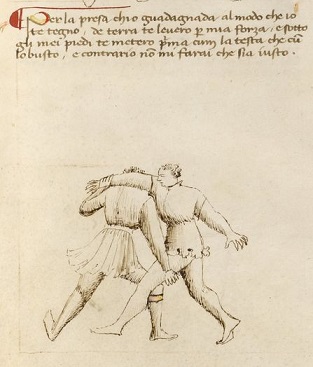 Per la presa ch'io guadagnada al modo che io
te tegno, de terra te levero per mia forza, e sotto
gli mei piedi te metero prima cum la testa che cum
lo busto, e contrario non mi farai che sia iusto.